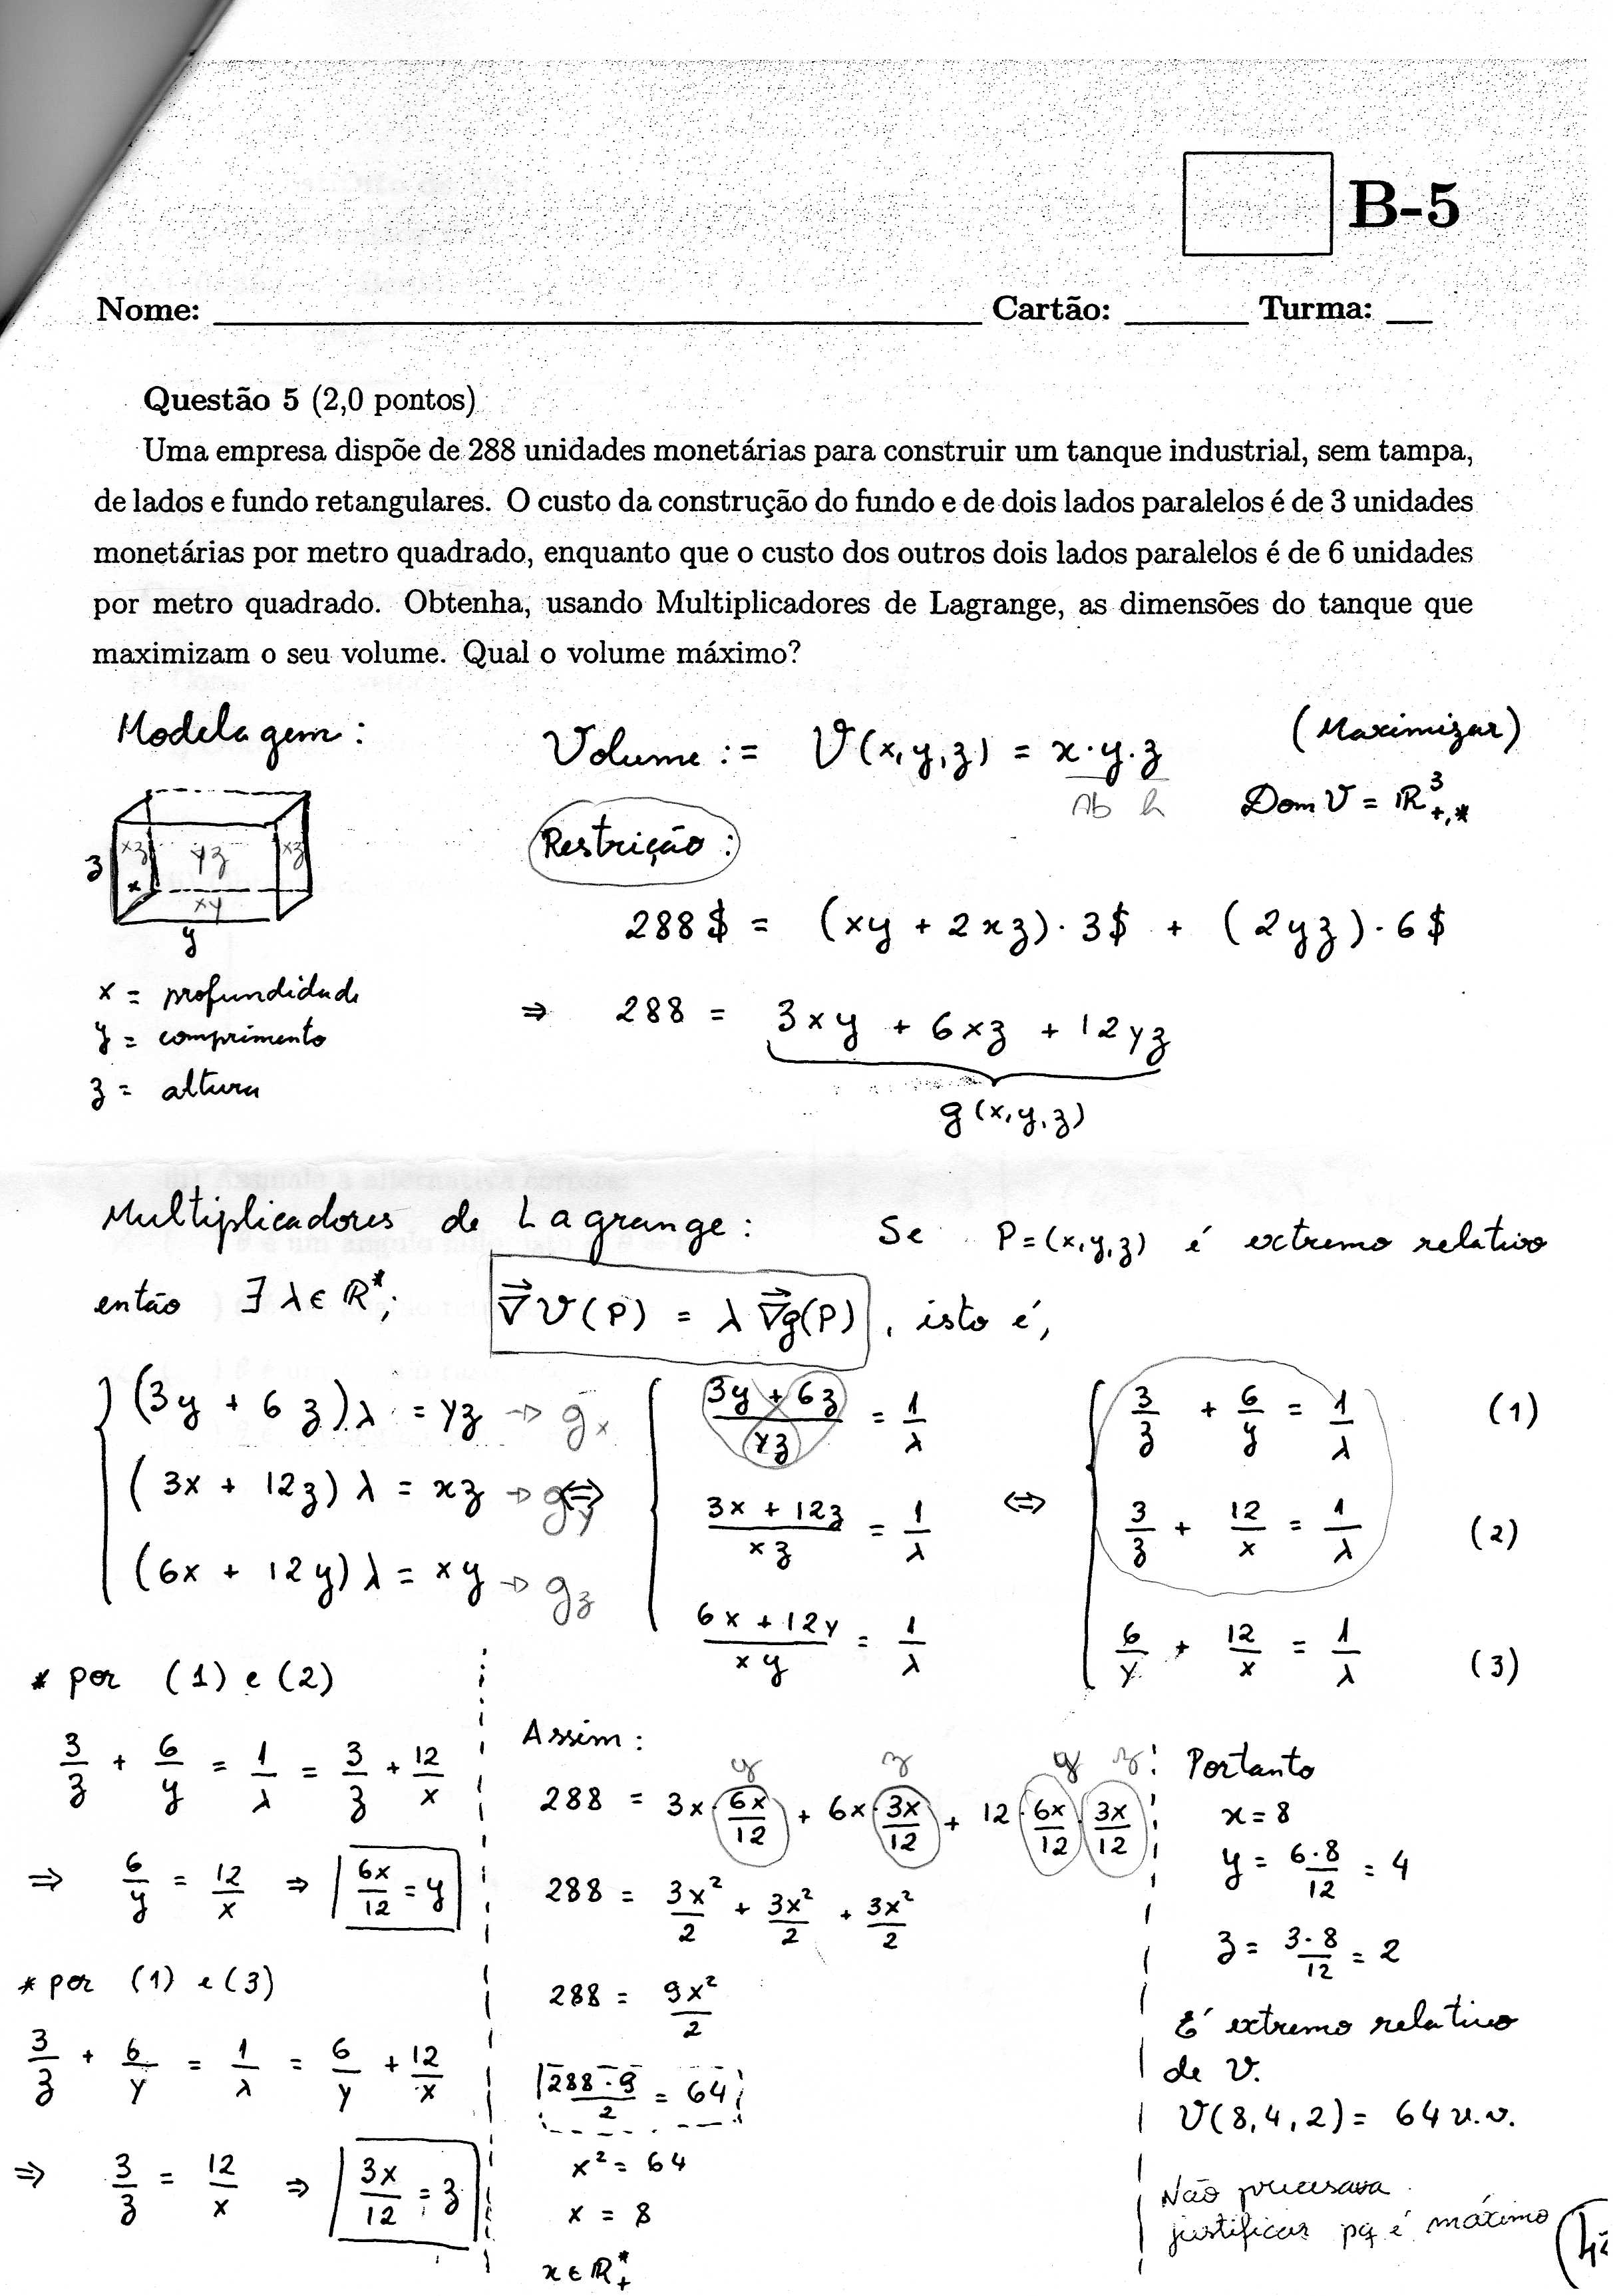 B-5
Nome: Cartão: Turma:
Questão 5 (2,0 pontos)
Uma empresa dispõe de 288 unidades monetárias para construir um tanque industrial, sem tampa,
de lados e fundo retangulares. O custo da construção do fundo e de dois lados paralelos é de 3 unidades
monetárias por metro quadrado, enquanto que o custo dos outros dois lados paralelos é de 6 unidades
por metro quadrado. Obtenha, usando Multiplicadores de Lagrange, as dimensões do tanque que
maximizam o seu volume. Qual o volume máximo?
Modelagem:
xz yz xz
z x xy
y
x = profundidade
y = comprimento
z = altura
Volume := V(x,y,z) = x·y·z (Maximizar)
Ab h Dom V = ℝ³₊,*
Restrição:
288$ = (xy + 2xz)·3$ + (2yz)·6$
⇒ 288 = 3xy + 6xz + 12yz
g(x,y,z)
Multiplicadores de Lagrange: Se P=(x,y,z) é extremo relativo
então ∃ λ ∈ ℝ*; ∇V(P) = λ∇g(P), isto é,
(3y + 6z)λ = yz → gx
(3x + 12z)λ = xz → gy
(6x + 12y)λ = xy → gz
⇔
(3y + 6z)/yz = 1/λ
(3x + 12z)/xz = 1/λ
(6x + 12y)/xy = 1/λ
⇔
3/z + 6/y = 1/λ (1)
3/z + 12/x = 1/λ (2)
6/y + 12/x = 1/λ (3)
* por (1) e (2)
3/z + 6/y = 1/λ = 3/z + 12/x
⇒ 6/y = 12/x ⇒ 6x/12 = y
* por (1) e (3)
3/z + 6/y = 1/λ = 6/y + 12/x
⇒ 3/z = 12/x ⇒ 3x/12 = z
Assim:
y z y z
288 = 3x·6x/12 + 6x·3x/12 + 12·6x/12·3x/12
288 = 3x²/2 + 3x²/2 + 3x²/2
288 = 9x²/2
288·9/2 = 64
x² = 64
x = 8
x ∈ ℝ₊*
Portanto
x = 8
y = 6·8/12 = 4
z = 3·8/12 = 2
É extremo relativo
de V.
V(8,4,2) = 64 u.v.
Não precisava
justificar pq é máximo